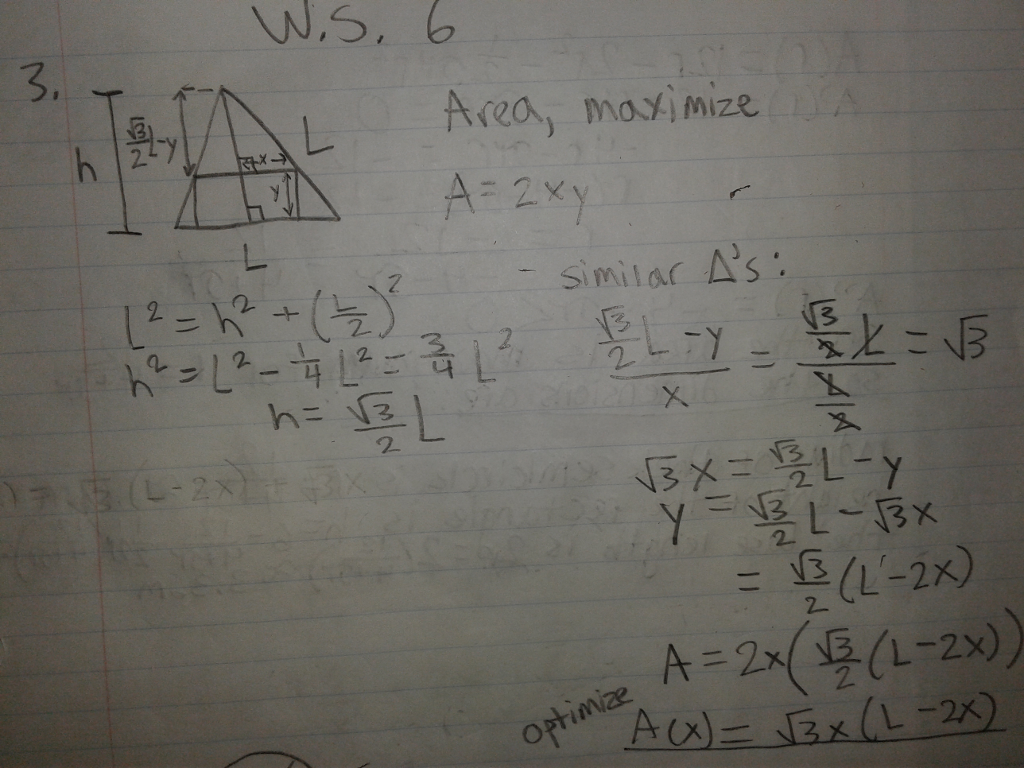 W.S. 6
3.
h
√3/2 L-y
x
y
L
L
Area, maximize
A = 2xy
- similar Δ's:
L² = h² + (L/2)²
h² = L² - 1/4 L² = 3/4 L²
h = √3/2 L
(√3/2 L - y)/x = (√3/2 L)/(L/2) = √3
√3x = √3/2 L - y
y = √3/2 L - √3x
= √3/2 (L - 2x)
A = 2x(√3/2 (L - 2x))
optimize
A(x) = √3x(L - 2x)